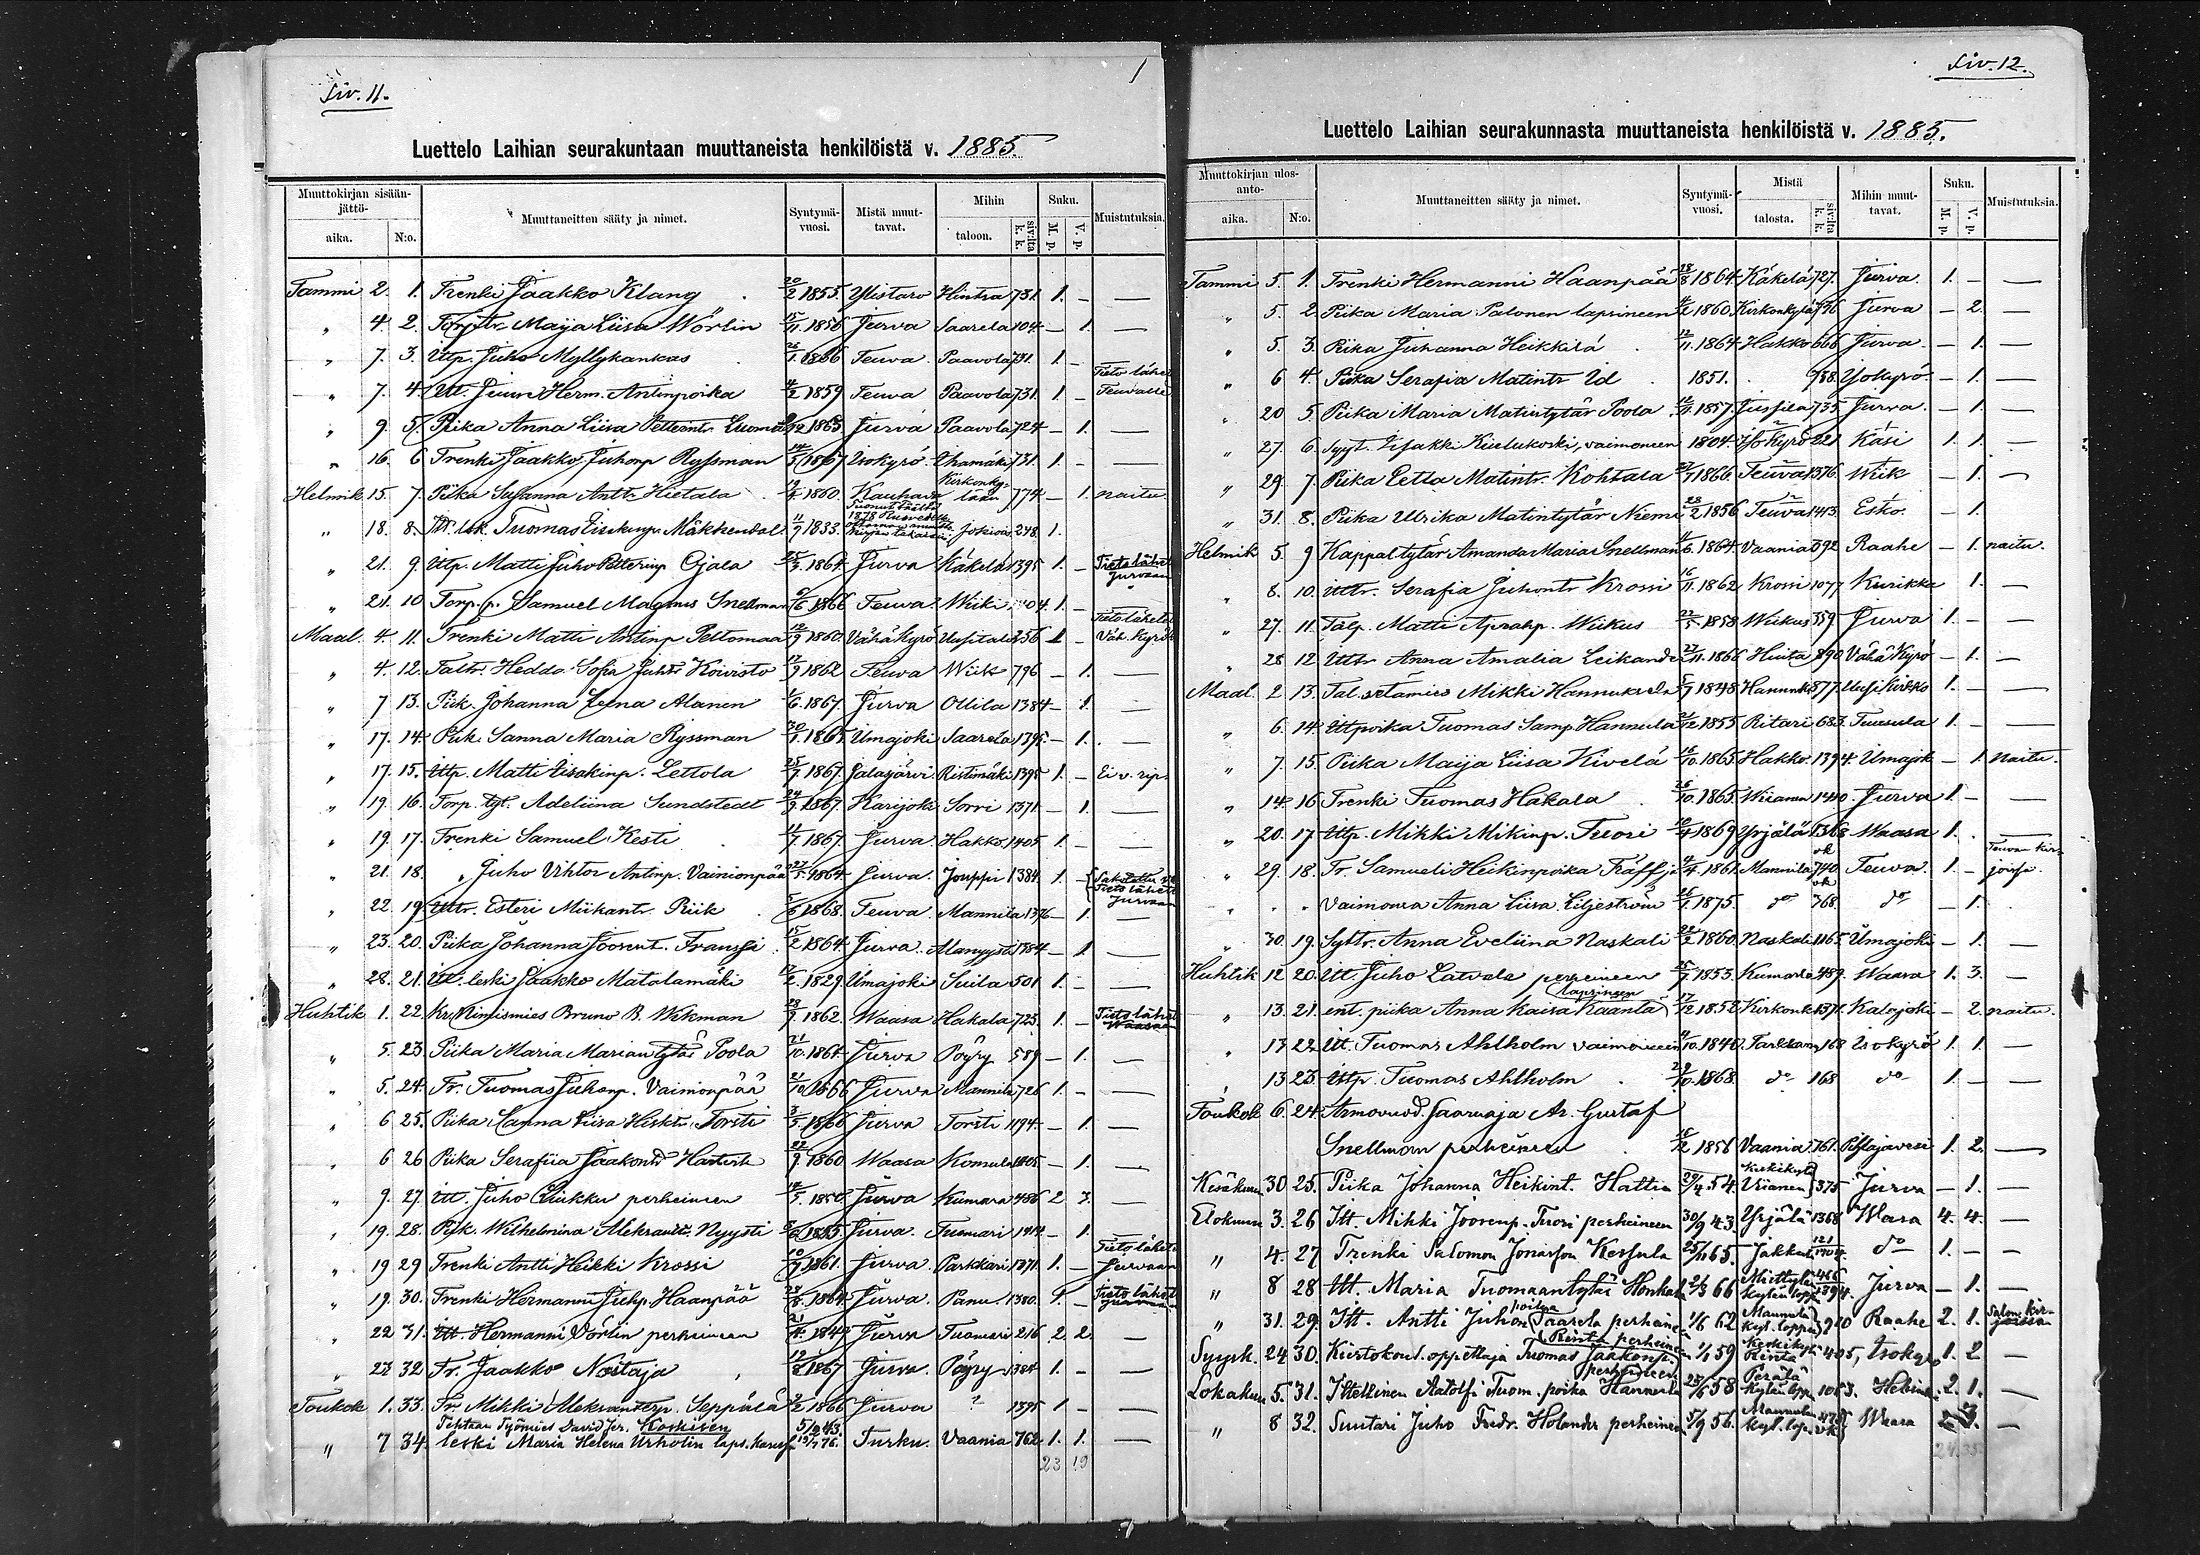 Siv. 11.
1
Luettelo Laihian seurakuntaan muuttaneista henkilöistä v. 1885.
Muuttokirjan sisäänjättö- Muuttaneitten sääty ja nimet. Syntymävuosi. Mistä muuttavat. Mihin Suku. Muistutuksia.
aika. N:o. taloon. siv:lta k. k. M. p. V. p.
Tammi 2. 1. Trenki Jaakko Klang 20/2 1853. Ylistaro Hintsa 731. 1. - —
„ 4 2. Torp.tr. Maija Liisa Wörlin 15/11 1856 Jurva Saarela 104. - 1. —
„ 7. 3. Ittp. Juho Myllykankas 26/1 1866 Teuva Paavola 731. 1 -
„ 7. 4. Itt. Juure Herm. Antinpoika 4/2 1859 Teuva Paavola 731. 1 - Tieto lähet. Teuvalle
„ 9. 5. Piika Anna Liisa 1865 Jurva Paavola 724 - 1. —
„ 16. 6 Trenki Jaakko Juhonp Ryssman 1867 Isokyrö 731. 1. - —
Helmik 15. 7. Piika Susanna Anttr. Hietala 1860. Kauhava Kirkonkylään 774 - 1. naitu
„ 18. 8. Tuomas 11/9 1833. Jokivar. 248. 1.
„ 21. 9. Ittp. Matti Juho Petterinp Ojala 25/3 1864 Jurva Käkelä 1395 1. - Tieto lähet Jurvaan
„ 21. 10 Torp. p. Samuel Magnus Snellman 1866 Teuva Wiiki 1. -
Maal. 4. 11. Trenki Matti Antinp. Peltomaa 1860 Vähäkyrö Uusitalo 256 1 - Tieto lähet. Väh. Kyröö
„ 4. 12. Taltr. Hedda Sofia Juhtr Koivisto 17/9 1862 Teuva Wiik 796 - 1. —
„ 7 13. Piik. Johanna Leena Alanen 1/6 1867. Jurva Ollila 1384 - 1. —
„ 17. 14. Piik. Sanna Maria Ryssman 30/1 1865 Ilmajoki Saarela 1395 - 1. —
„ 17. 15. Ittp. Matti Eisakinp. Lettola 25/7 1867. Jalasjärvi Ristimäki 1395 1. - Ei v. rip.
„ 19. 16. Torp. tyt. Adeliina Sundstedt 24/9 1867. Karijoki Sorri 1371 - 1. —
„ 19. 17. Trenki Samuel Kesti 11/7 1867. Jurva Hakko 1405 1. - —
„ 21. 18. „ Juho Vihtor Antinp. Vainionpää 27/5 1864 Jurva Jouppi 1384. 1. - Tieto lähet Jurvaan
„ 22. 19. Ittr. Esteri Miikantr. Piik 1868. Teuva Mannila 1376 - 1. —
„ 23. 20. Piika Johanna Joosent. Franssi 15/2 1864 Jurva Alanyysti 1384 - 1. —
„ 28. 21. Itt. leski Jaakko Matalamäki 17/2 1829 Ilmajoki Suila 501 1. - —
Huhtik 1. 22. Kr. Nimismies Bruno B. Wikman 28/9 1862. Waasa Hakala 723. 1. - Tieto lähet Waasaan
„ 5. 23. Piika Maria Mariantytär Poola 21/10 1864. Jurva Pöyry 589 - 1. —
„ 5. 24. Tr. Tuomas Juhonp. Vainionpää 21/10 1866 Jurva Mannila 726 1. - —
„ 6 25. Piika Sanna Liisa Heiktr. Torsti 3/3 1866 Jurva Torsti 1194 - 1. —
„ 6 26 Piika Serafiia Jaakontr 22/9 1860 Waasa Komula 1405 - 1. —
„ 9. 27. Itt. Juho perheineen 14/5 1850 Jurva Kumara 486 2 3. —
„ 19. 28. Piik. Wilhelmina Aleksantr. Nyysti 1865 Jurva. Tuomari 1414 - 1.
„ 19 29 Trenki Antti Heikki Krossi 10/9 1861. Jurva. Parkkari 1371. 1. - Tieto lähet. Jurvaan
„ 19. 30. Trenki Hermanni Juhp. Haanpää 28/8 1864 Jurva. Panu 1380. 1. - Tieto lähet Jurvaan
„ 22 31. Itt. Hermanni Wörlin perheineen 1849 Jurva Tuomari 216 2 2. —
„ 23 32 Tr. Jaakko Nostaja 1867 Jurva. Pöyry 1384 1. - —
Toukok. 1. 33. Tr. Mikki Aleksanterp. Seppälä 2/2 1866 Jurva ? 1395 1 - —
Tehtaan Työmies David Jer. Koskisen 5/10 43.
„ 7 34. leski Maria Helena Urholin laps. 19/7 76. Turku. Vaania 762 1. 1. —
23 19
Siv. 12.
Luettelo Laihian seurakunnasta muuttaneista henkilöistä v. 1885.
Muuttokirjan ulosanto- Muuttaneitten sääty ja nimet. Syntymävuosi. Mistä Mihin muuttavat. Suku. Muistutuksia.
aika. N:o. talosta. siv:lta k. k. M. p. V. p.
Tammi 5. 1. Trenki Hermanni Haanpää 28/8 1864 Käkelä 727. Jurva. 1. - —
„ 5. 2. Piika Maria Palonen lapsineen 1860. Kirkonkylä 736 Jurva - 2. —
„ 5. 3. Piika Juhanna Heikkilä 12/11 1864 Hakko 666 Jurva. - 1. —
„ 6 4. Piika Serafia Matintr Ud 1851. 788. Isokyrö. - 1. —
„ 20 5. Piika Maria Matintytär Poola 1857. Jussila 735. Jurva. - 1. —
„ 27. 6. Syyt. Iisakki Kiulukoski, vaimoneen 1804. Isokyrö 221. Käsi 1. 1. —
„ 29 7. Piika Eetla Matintr. Kohtala 1866. Teuva 1376. Wiik - 1. —
„ 31. 8. Piika Ulrika Matintytär Niemi 28/2 1856 Teuva 1443. Esko. - 1.
Helmik 5. 9 Kappal.tytär Amanda Maria Snellman 1864. Vaania 692 Raahe - 1. naitu.
„ 8. 10. Ittr. Serafia Juhontr Krossi 16/11 1862 Krossi 1077 Kurikka 1. —
„ 27. 11. Talp. Matti Wiikus 22/5 1858 Wiikus 359 Jurva 1. - —
„ 28 12. Ittr Anna Amalia 27/11 1866 Hinta 890 Vähä Kyrö - 1. —
Maal. 2. 13. Tal. Mikki Hannuksela 5/9 1848. Hannuks 877. Uusi Kirkko 1. —
„ 6. 14. Ittpoika Tuomas Samp. Hannula 1855 Ritari 683. Tuusula 1. - —
„ 7. 15. Piika Maija Liisa Kivelä 18/10 1865. Hakko. 1394. Ilmajok - 1. Naitu.
„ 14. 16 Trenki Tuomas Hakala 26/10 1865. Wiianen 1440. Jurva 1. - —
„ 20. 17. Ittp. Mikki Mikinp. Tuori 18/4 1869 Yrjälä 1368 Waasa 1. —
„ 29. 18. Tr. Samueli Heikinpoika Träff 9/4 1861. Mannila 740 Teuva. 1. - Teuvan kirjoissa.
„ „ „ Vaimonsa Anna Liisa Liljeström 26/1 1875. do 768. do - 1.
„ 30. 19. Syttr. Anna Eveliina Naskali 22/2 1860. Naskali 1165. Ilmajoki - 1. —
Huhtik 12 20. Itt. Juho Latvala perheineen 25/7 1853. Kumarla 489. Waasa 1. 3. —
„ 13. 21. ent. piika Anna Kaisa Kaanta lapsineen 17/12 1852. Kirkonk 1371. Kalajoki - 2. naitu.
„ 13 22. Itt. Tuomas Ahlholm vaimoineen 4/10 1840. Tarkkan 168 Isokyrö 1. 1. —
„ 13 23. Ittp. Tuomas Ahlholm 29/10 1868. do 168 do 1. - —
Toukok 6. 24. Armovuod. Saarnaaja Ar. Gustaf
Snellman perheineen 1856 Vaania. 761. Pihlajavesi 1. 2. —
Kesäkuu 30 25. Piika Johanna Heikint. Hattia 29/4 54. Keskikylä Viianen 375 Jurva - 1. —
Elokuun 3. 26 Itt. Mihki Joosenp. Tuori perheineen 30/9 43. Yrjälä 1368 Wasa 4. 4. —
„ 4. 27 Trenki Salomon Jonasson Kessula 25/11 65. Jakkula do 1. - —
„ 8 28 Itt. Maria Tuomaantytär Honkala 2/3 66 Miettylä Kylän lopp. 1394. Jurva - 1. —
„ 31. 29. Itt. Antti Juhonpoika Saarela perhein 1/6 62 Mannila Kyl. loppu 920 Raahe 2. 1. Salon kirjoissa
Syysk. 24 30. Kiertokoul. oppettaja Tuomas Jaakonp. Rinta perheineen 1/1 59 Keskikyl. Rinta 405, Isokyrö 1. 2 —
Lokakuu 5. 31. Itsellinen Aatolfi Tuom. poika Hannula perheineen 25/6 58 Perälä Kylän lopp. 1063. Helsink. 2. 1. —
„ 8 32. Suutari Juho Fredr. Holander perheineen 5/9 56. Mannila Kyl. lop. Waasa 2. 3. —
24. 35